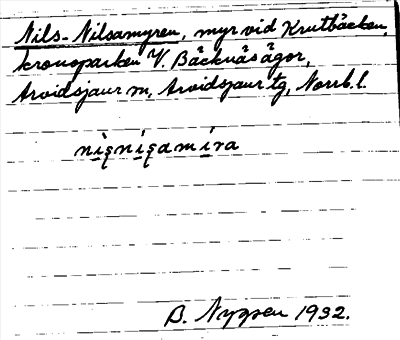 Nils-Nilsamyren, myr vid Krutbäcken,
kronoparken V. Bäcknäs ägor,
Arvidsjaur m, Arvidsjaur tg, Norrb. l.
B. Nygren 1932.